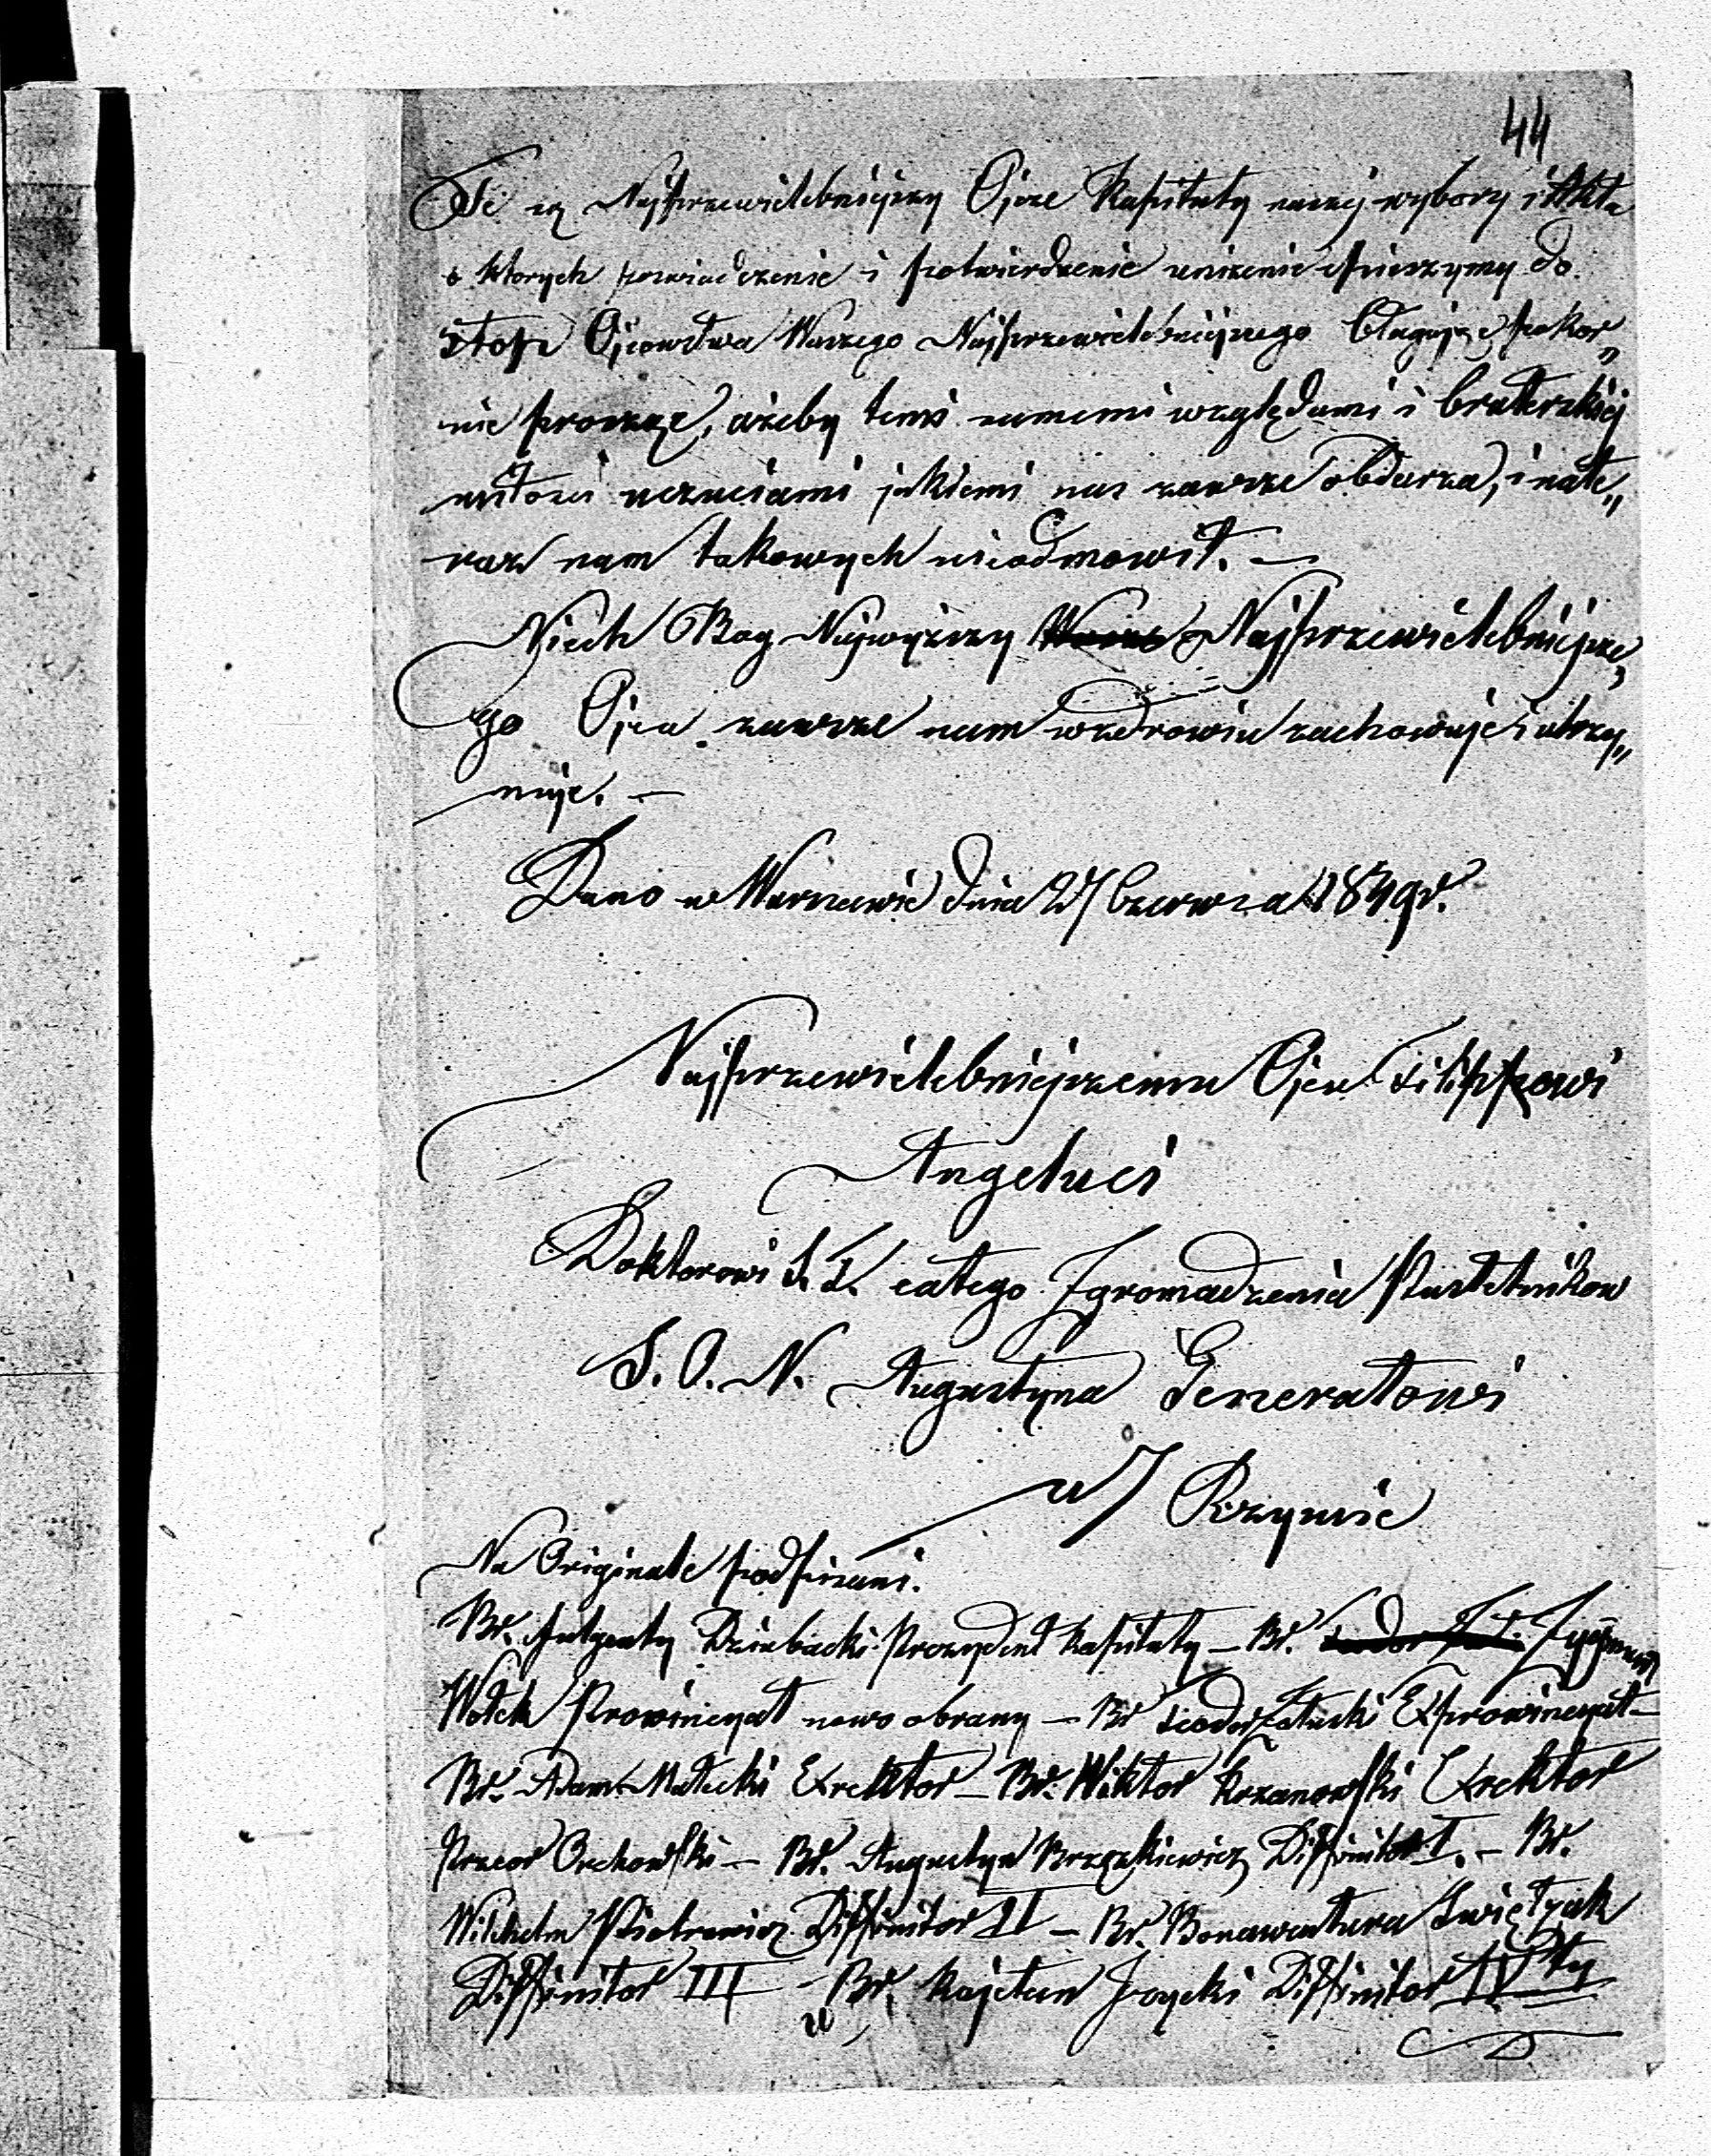 44
Te są Najprzewielebniejszy Ojcze Kapituły naszej wybory i Akta
o ktorych poswiadczenie i potwierdzenie unizenie spieszymy do
stop Ojcowstwa Waszego Najprzewielebniejszego błagając pokor„
nie prosząc, ażeby temi samemi względami i braterskiej
miłosci uczuciami jakiemi nas zawsze obdarza, i na te„
raz nam takowych nieodmowił. —
Niech Bog Najwyższy Najprzewielebniejsze„
go Ojca zawsze nam w zdrowiu zachowuje i utrzy„
muje. —
Dano w Warszawie dnia 27 Czerwca 1849 r.
Najprzewielebniejszemu Ojcu Filippowi
Angeluci
Doktorowi S. T. całego Zgromadzenia Pustelnikow
S. O. N. Augustyna Generałowi
w Rzymie
Na Originale podpisani.
Br. Fulgenty Dziubacki Prezydent Kapituły — Br. Zygmunt
Wołek Prowincyał nowo obrany — Br Teodor Załuski Exprowincyał —
Br. Adam Małecki Exrektor — Br. Wiktor Krzanowski Exrektor
Przeor Orchowski — Br. Augustyn Brzezkiewicz Diffinitor I. — Br.
Wilchelm Piotrowicz Diffinitor II — Br. Bonawentura Swiętzak
Diffinitor III — Br. Kajetan Diffinitor IV ty